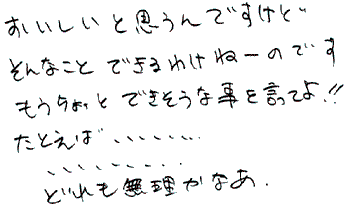 すいしいと思うんですけど
そんなことできるわけねーのです
もうちょっとできそうな事を言ってよ!!
たとえば、、、、、、、、
、、、、、、、、、、
どれも無理かなあ.